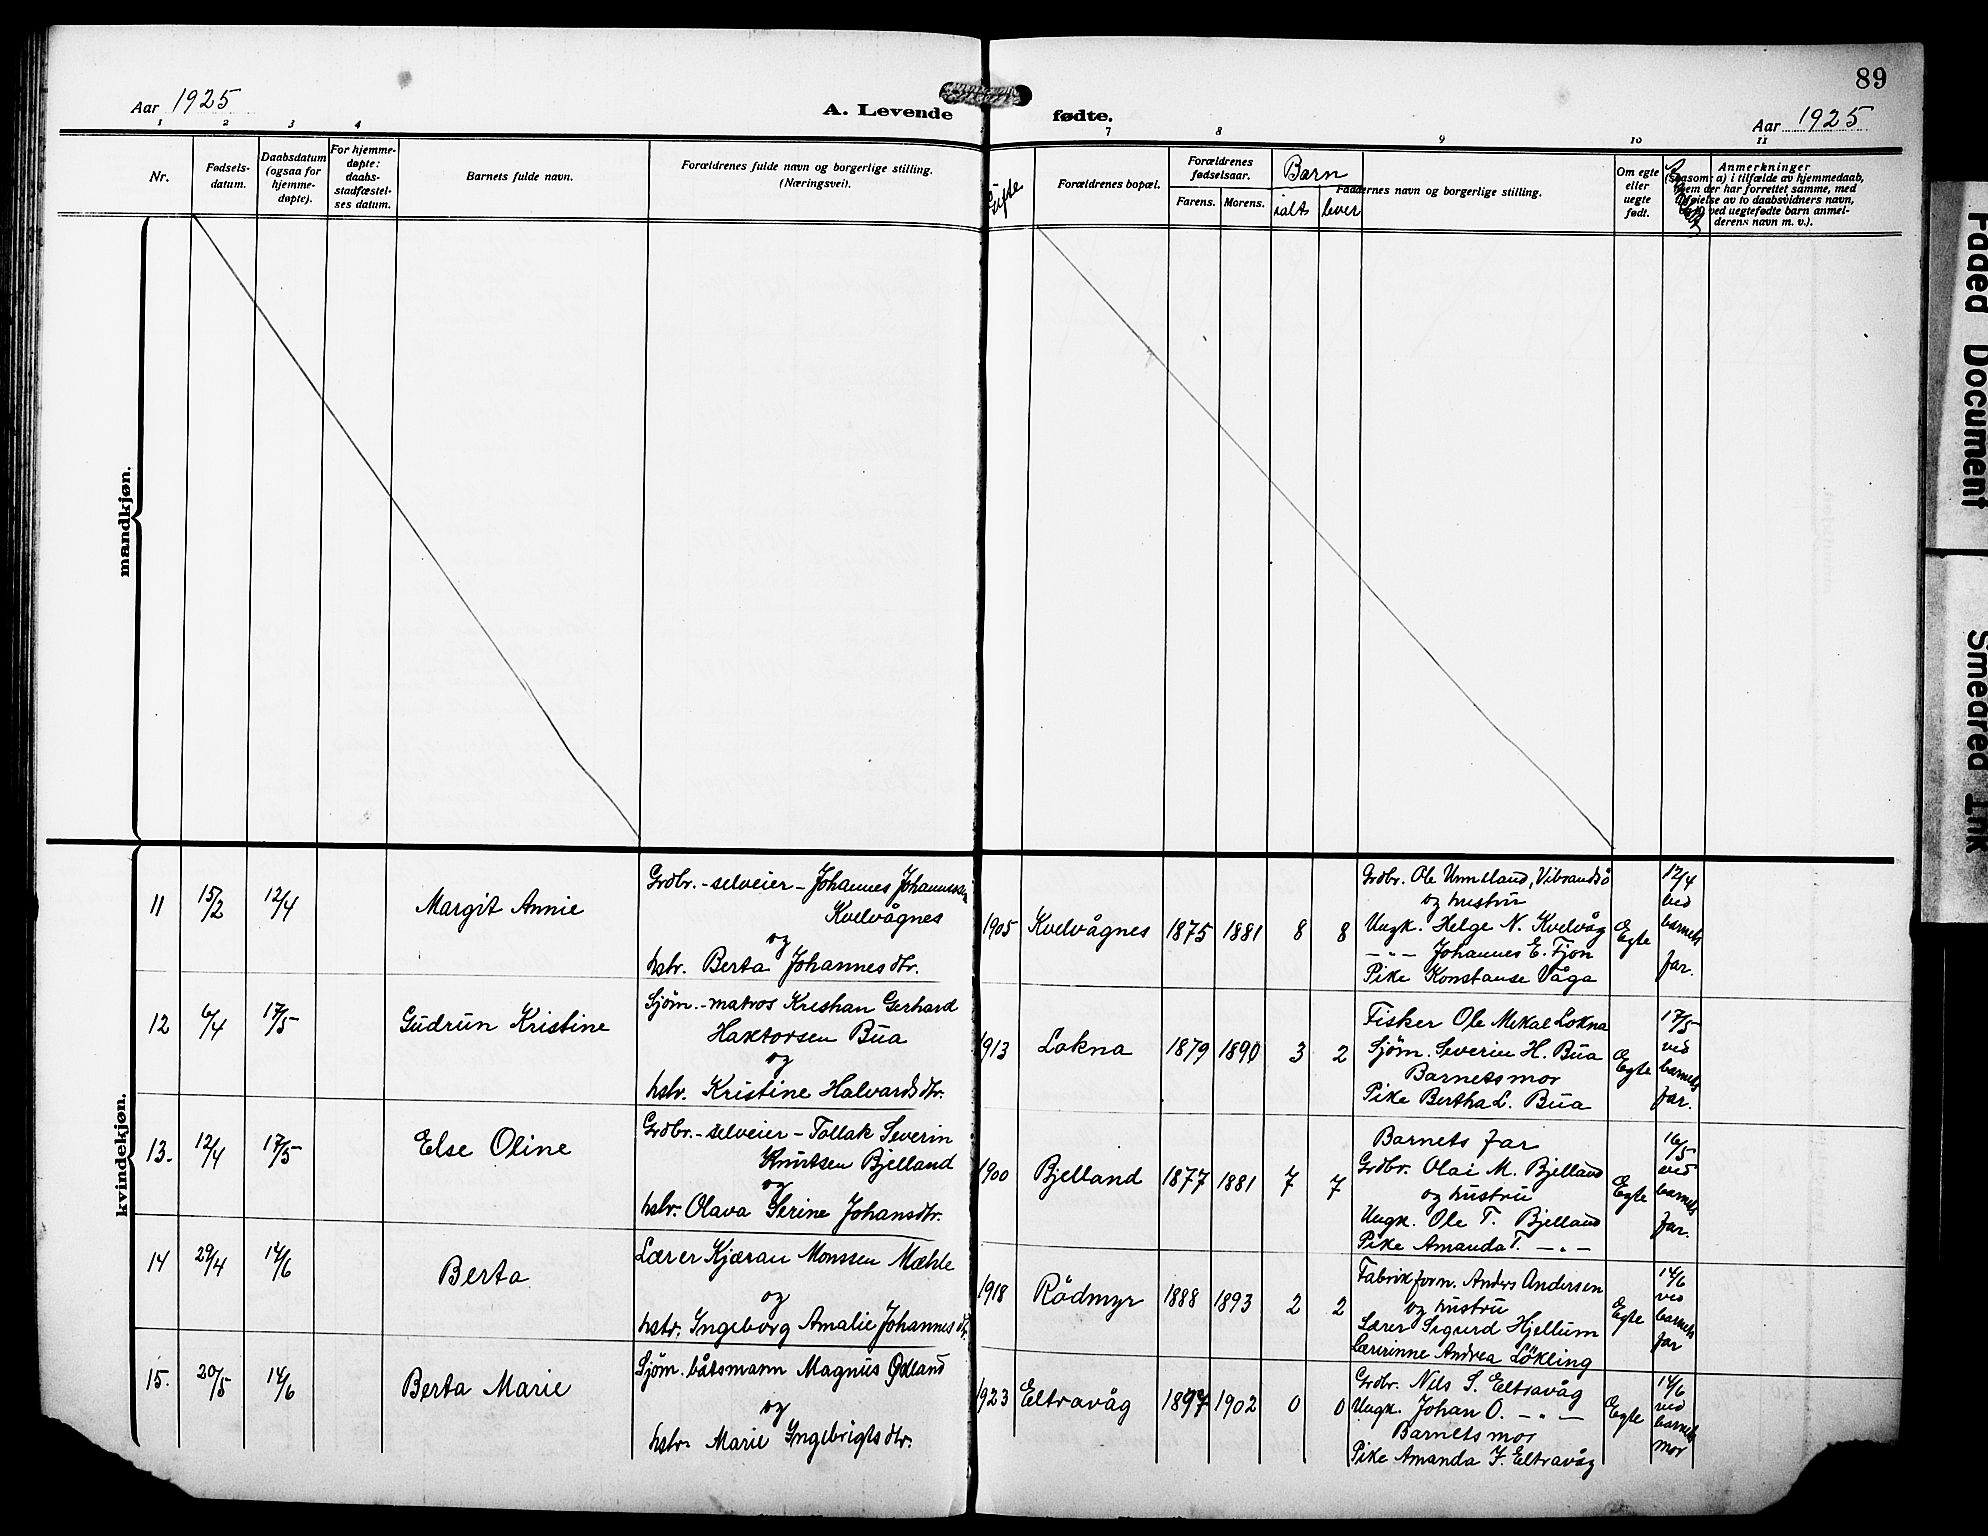 89
Aar 1925
A. Levende fødte.
Aar 1925
1 2 3 4 7 8 9 10 11
Nr.
Fødsels-
datum.
Daabsdatum
(ogsaa for
hjemme-
døpte).
For hjemme-
døpte:
daabs-
stadfæstel-
ses datum.
Barnets fulde navn.
Forældrenes fulde navn og borgerlige stilling.
(Næringsvei).
Gifte
Forældrenes bopæl.
Forældrenes
fødselsaar.
Farens. Morens.
Barn
ialt lever
Faddernes navn og borgerlige stilling.
Om egte
eller
uegte
født.
Anmerkninger
(saasom: a) i tilfælde av hjemmedaab,
hvem der har forrettet samme, med
tilføielse av to daabsvidners navn,
b) ved uegtefødte barn anmel-
derens navn m. v.).
mandkjøn.
kvindekjøn.
11 15/2 12/4 Margit Annie
Grdbr. - selveier - Johannes Johannessen
Kvelvågnes
og
hstr. Berta Johannesdtr.
1905 Kvelvågnes 1875 1881 8 8
Grdbr. Ole Unneland, Vibrandsö
og hustru
Ungk. Helge N. Kvelvåg
- " - Johannes E. Fjon
Pike Konstanse Våga
Egte
12/4
ved
barnets
far.
12 6/4 17/5 Gudrun Kristine
Sjöm. - matros Kristian Gerhard
Haktorsen Bua
og
hstr. Kristine Halvardsdtr.
1913 Lokna 1879 1890 3 2
Fisker Ole Mikal Lokna
Sjöm. Severin H. Bua
Barnets mor
Pike Bertha L. Bua
Egte
17/5
ved
barnets
far.
13. 12/4 17/5 Else Oline
Grdbr. - selveier - Tollak Severin
Knutsen Bjelland
og
hstr. Olava Serine Johansdtr.
1900 Bjelland 1877 1881 7 7
Barnets far
Grdbr. Olai M. Bjelland
og hustru
Ungk. Ole T. Bjelland
Pike Amanda T. - " -
Egte
16/5
ved
barnets
far.
14 29/4 14/6 Berta
Lærer Kjæran Monssen Mæhle
og
hstr. Ingeborg Amalie Johannesdtr.
1918 Rödmyr 1888 1893 2 2
Fabrikform. Anders Andersen
og hustru
Lærer Sigurd Hjellum
Læririnne Andrea Lökling
Egte
14/6
ved
barnets
far
15. 20/5 14/6 Berta Marie
Sjöm. båtsmann Magnus Ödland
og
hstr. Marie Ingebrigtsdtr.
1923 Eltravåg 1897 1902 0 0
Grdbr. Nils S. Eltravåg
Ungk. Johan O. - " -
Barnets mor
Pike Amanda J. Eltravåg
Egte
14/6
ved
barnets
mor
Faded Document
Smeared Ink